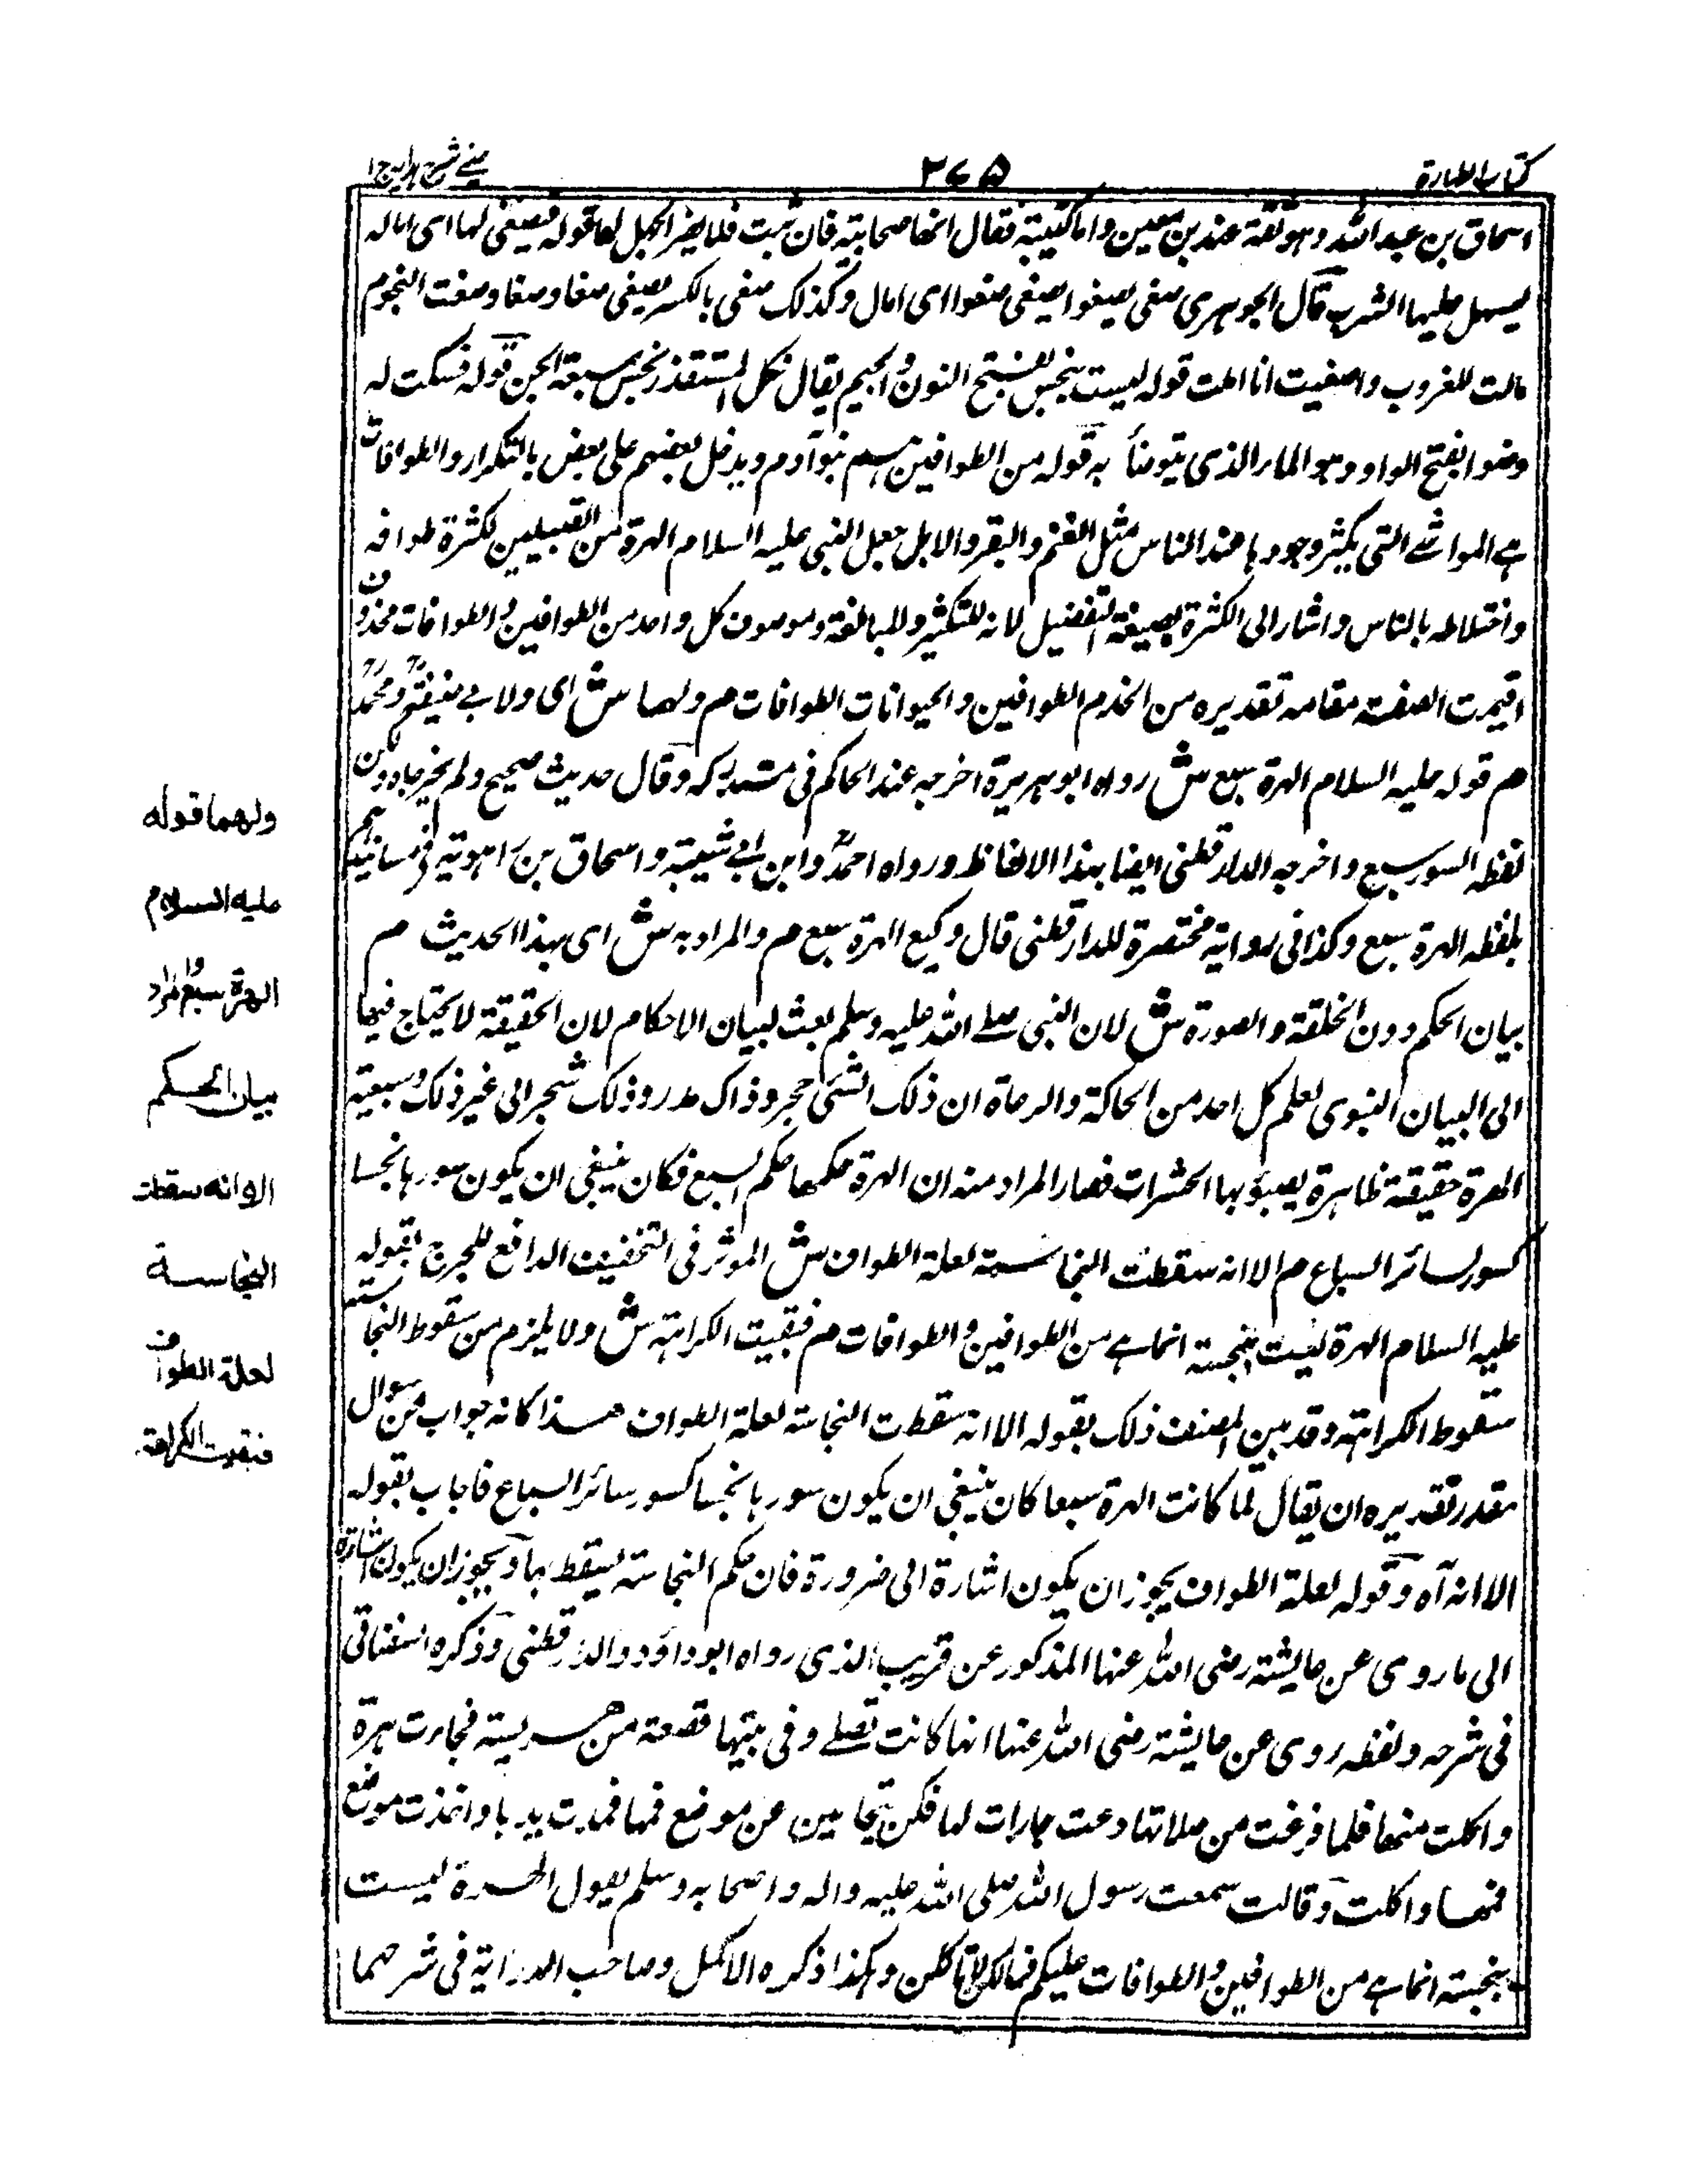 كتاب الطهارة
٢٧٥
عيني شرح هداية ج ١
اسحاق بن عبد الله وهو ثقة عند بن معين واما كبشة فقال انها صحابية فان ثبت فلا يضر الجهل لها قوله فيصغى لها اى اماله
ليسهل عليها الشرب قال الجوهرى صغى يصغوا يصغى صغوا اى امال وكذلك صغى بالكسر يصغى صغا وصغا وصغت النجوم
مالت للغروب واصغيت انا املت قوله ليست بنجس بفتح النون والجيم يقال لكل مستقذر نجس سبعة الجن قوله فسكبت له
وضوا بفتح الواو وهو الماء الذى يتوضأ به قوله من الطوافين هم بنو آدم ويدخل بعضهم على بعض بالتكرار والطوافات
هى المواشى التى يكثر وجودها عند الناس مثل الغنم والبقر والابل جعل النبى عليه السلام الهرة من القبيلين لكثرة طوافه
واختلاطه بالناس واشار الى الكثرة بصيغة التفضيل لانه للتكثير وللمبالغة وموصوف كل واحد من الطوافين والطوافات محذوف
اقيمت الصفة مقامه تقديره من الخدم الطوافين والحيوانات الطوافات م ولهما ش اى ولابى حنيفة ومحمد
م قوله عليه السلام الهرة سبع ش رواه ابو هريرة اخرجه عند الحاكم فى مستدركه وقال حديث صحيح ولم يخرجاه ولكن
لفظه السنور سبع واخرجه الدارقطنى ايضا بهذا الالفاظ ورواه احمد وابن ابى شيبة واسحاق بن راهوية فى مسانيدهم
بلفظه الهرة سبع وكذا فى رواية مختصرة للدارقطنى قال وكيع الهرة سبع م والمراد به ش اى بهذا الحديث م
بيان الحكم دون الخلقة والصورة ش لان النبى صلى الله عليه وسلم بعث لبيان الاحكام لان الحقيقة لا يحتاج فيها
الى البيان النبوى لعلم كل احد من الحاكة والرعاة ان ذلك الشئ حجر وذاك مدر وذلك شجر الى غير ذلك وسبعية
الهرة حقيقة ظاهرة يصيبو بها الحشرات فصار المراد منه ان الهرة حكمها حكم السبع فكان ينبغى ان يكون سورها نجسا
كسور لسائر السباع م الا انه سقطت النجاسة لعلة الطواف ش الموثر فى التخفيف الدافع للحرج بقوله
عليه السلام الهرة ليست بنجسة انما هى من الطوافين والطوافات م فبقيت الكراهة ش ولا يلزم من سقوط النجاسة
سقوط الكراهة وقد بين المصنف ذلك بقوله الا انه سقطت النجاسة لعلة الطواف هذا كانه جواب عن سوال
مقدر تقديره ان يقال لما كانت الهرة سبعا كان ينبغى ان يكون سورها نجسا كسور سائر السباع فاجاب بقوله
الا انه آه وقوله لعلة الطواف يجوز ان يكون اشارة الى ضرورة فان حكم النجاسة يسقط بها ويجوز ان يكون اشارة
الى ما روى عن عايشة رضى الله عنها المذكور عن قريب الذى رواه ابو داؤد والدارقطنى وذكره السغناقى
فى شرحه ولفظه روى عن عايشة رضى الله عنها انها كانت تصلى وفى بيتها قصعة من هريسة فجاءت هرة
واكلت منها فلما فرغت من صلاتها دعت جارات لها فكن يتحامين عن موضع فمها فمدت يدها واخذت موضع
فمها واكلت وقالت سمعت رسول الله صلى الله عليه واله واصحابه وسلم يقول الهرة ليست
بنجسة انما هى من الطوافين والطوافات عليكم فمالكن لا تاكلن وهكذا ذكره الاكمل وصاحب الدراية فى شرحهما
ولهما قوله
عليه السلام
الهرة سبع والمراد
بيان الحكم
الا انه سقطت
النجاسة
لعلة الطواف
فبقيت الكراهة